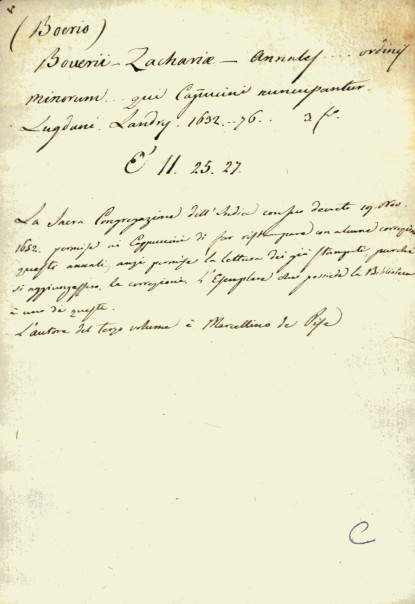 (Boerio)
Boverii - Zachariæ - Annales .... ordinis
minorum ... qui Capuccini nuncupantur.
Lugdani. Landry. 1632 .. 76. 3 f.º
E' 11. 25. 27.
La Sacra Congregazione dell' Indice con suo decreto
1652. permise ai Cappuccini di far ristampare con alcune correzioni
questi annali, anzi permise la lettura dei già stampati purchè
si aggiungessero le correzioni. L'Esemplare che possiede la Biblioteca
è uno di questi.
L'autore del terzo volume è Marcellino de Pise
C